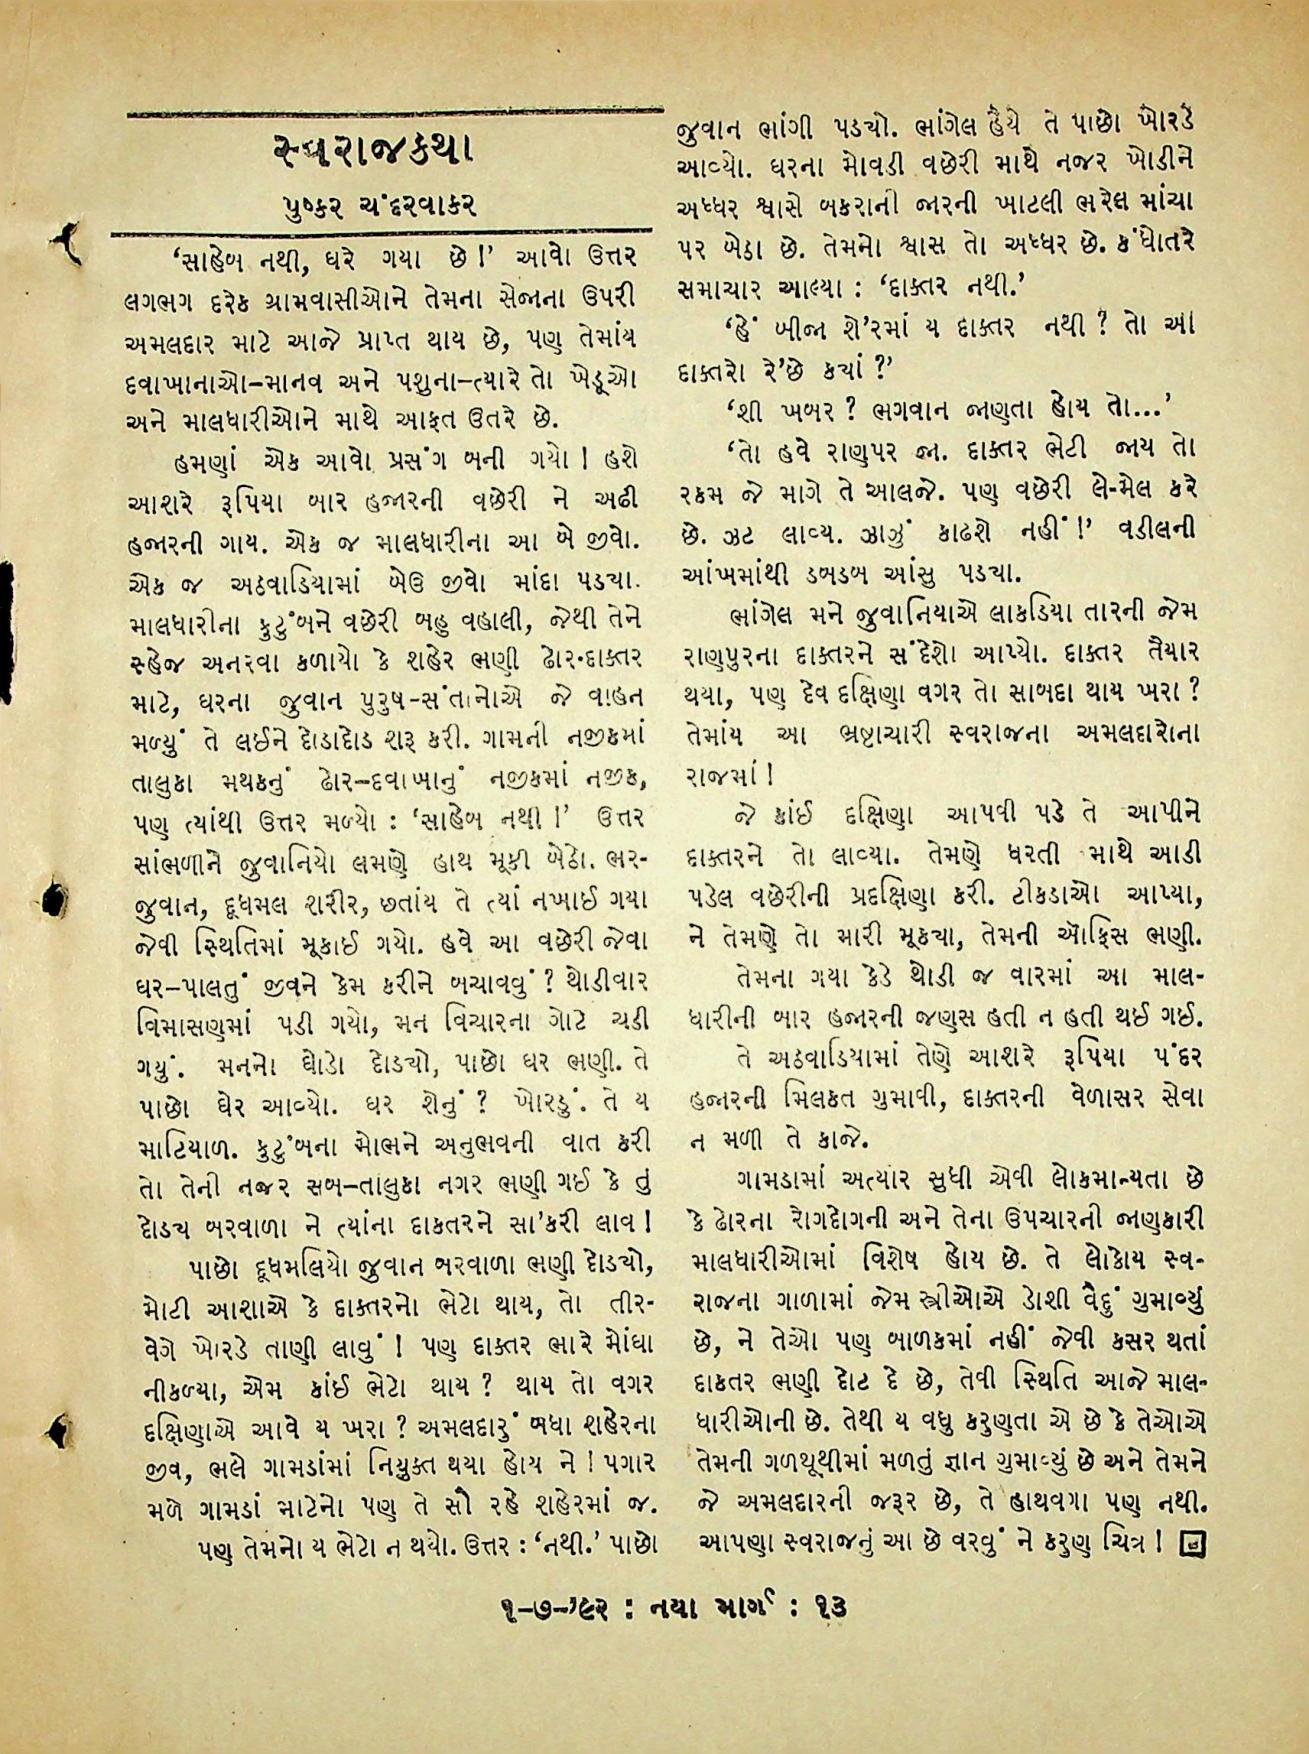 સ્વરાજકથા
પુષ્કર ચંદરવાકર
‘સાહેબ નથી, ઘરે ગયા છે!’ આવો ઉત્તર
લગભગ દરેક ગ્રામવાસીઓને તેમના સેજાના ઉપરી
અમલદાર માટે આજે પ્રાપ્ત થાય છે, પણ તેમાંય
દવાખાનાઓ–માનવ અને પશુના–ત્યારે તો ખેડૂઓ
અને માલધારીઓને માથે આફત ઉતરે છે.
હમણાં એક આવો પ્રસંગ બની ગયો! હશે
આશરે રૂપિયા બાર હજારની વછેરી ને અઢી
હજારની ગાય. એક જ માલધારીના આ બે જીવો.
એક જ અઠવાડિયામાં બેઉ જીવો માંદા પડ્યા.
માલધારીના કુટુંબને વછેરી બહુ વહાલી, જેથી તેને
સ્હેજ અનરવા કળાયો કે શહેર ભણી ઢોર-દાક્તર
માટે, ઘરના જુવાન પુરુષ-સંતાનોએ જે વાહન
મળ્યું તે લઈને દોડાદોડ શરૂ કરી. ગામની નજીકમાં
તાલુકા મથકનું ઢોર–દવાખાનું નજીકમાં નજીક,
પણ ત્યાંથી ઉત્તર મળ્યો : ‘સાહેબ નથી!’ ઉત્તર
સાંભળીને જુવાનિયો લમણે હાથ મૂકી બેઠો. ભર-
જુવાન, દૂધમલ શરીર, છતાંય તે ત્યાં નખાઈ ગયા
જેવી સ્થિતિમાં મૂકાઈ ગયો. હવે આ વછેરી જેવા
ઘર–પાલતું જીવને કેમ કરીને બચાવવું? થોડીવાર
વિમાસણમાં પડી ગયો, મન વિચારના ગોટે ચડી
ગયું. મનનો ઘોડો દોડ્યો, પાછો ઘર ભણી. તે
પાછો ઘેર આવ્યો. ઘર શેનું? ખોરડું. તે ય
માટિયાળ. કુટુંબના મોભને અનુભવની વાત કરી
તો તેની નજર સબ–તાલુકા નગર ભણી ગઈ કે તું
દોડ્ય બરવાળા ને ત્યાંના દાકતરને સા’કરી લાવ!
પાછો દૂધમલિયો જુવાન બરવાળા ભણી દોડ્યો,
મોટી આશાએ કે દાક્તરનો ભેટો થાય, તો તીર-
વેગે ખોરડે તાણી લાવું! પણ દાક્તર ભારે મોંઘા
નીકળ્યા, એમ કાંઈ ભેટો થાય? થાય તો વગર
દક્ષિણાએ આવે ય ખરા? અમલદારું બધા શહેરના
જીવ, ભલે ગામડાંમાં નિયુક્ત થયા હોય ને! પગાર
મળે ગામડાં માટેનો પણ તે સૌ રહે શહેરમાં જ.
પણ તેમનો ય ભેટો ન થયો. ઉત્તર : ‘નથી.’ પાછો
જુવાન ભાંગી પડ્યો. ભાંગેલ હૈયે તે પાછો ખોરડે
આવ્યો. ઘરના મોવડી વછેરી માથે નજર ખોડીને
અધ્ધર શ્વાસે બકરાની જારની ખાટલી ભરેલ માંચા
પર બેઠા છે. તેમનો શ્વાસ તો અધ્ધર છે. કંધોતરે
સમાચાર આલ્યા : ‘દાક્તર નથી.’
‘હેં બીજા શે’રમાં ય દાક્તર નથી? તો આ
દાક્તરો રે’છે ક્યાં?’
‘શી ખબર? ભગવાન જાણતા હોય તો...’
‘તો હવે રાણપર જા. દાક્તર ભેટી જાય તો
રકમ જે માગે તે આલજે. પણ વછેરી લે-મેલ કરે
છે. ઝટ લાવ્ય. ઝાઝું કાઢશે નહીં!’ વડીલની
આંખમાંથી ડબડબ આંસુ પડ્યા.
ભાંગેલ મને જુવાનિયાએ લાકડિયા તારની જેમ
રાણપુરના દાક્તરને સંદેશો આપ્યો. દાક્તર તૈયાર
થયા, પણ દેવ દક્ષિણા વગર તો સાબદા થાય ખરા?
તેમાંય આ ભ્રષ્ટાચારી સ્વરાજના અમલદારોના
રાજમાં!
જે કાંઈ દક્ષિણા આપવી પડે તે આપીને
દાક્તરને તો લાવ્યા. તેમણે ધરતી માથે આડી
પડેલ વછેરીની પ્રદક્ષિણા કરી. ટીકડાઓ આપ્યા,
ને તેમણે તો મારી મૂક્યા, તેમની ઑફિસ ભણી.
તેમના ગયા કેડે થોડી જ વારમાં આ માલ-
ધારીની બાર હજારની જણસ હતી ન હતી થઈ ગઈ.
તે અઠવાડિયામાં તેણે આશરે રૂપિયા પંદર
હજારની મિલકત ગુમાવી, દાક્તરની વેળાસર સેવા
ન મળી તે કાજે.
ગામડામાં અત્યાર સુધી એવી લોકમાન્યતા છે
કે ઢોરના રોગદોગની અને તેના ઉપચારની જાણકારી
માલધારીઓમાં વિશેષ હોય છે. તે લોકોય સ્વ-
રાજના ગાળામાં જેમ સ્ત્રીઓએ ડોશી વૈદું ગુમાવ્યું
છે, ને તેઓ પણ બાળકમાં નહીં જેવી કસર થતાં
દાકતર ભણી દોટ દે છે, તેવી સ્થિતિ આજે માલ-
ધારીઓની છે. તેથી ય વધુ કરુણતા એ છે કે તેઓએ
તેમની ગળથૂથીમાં મળતું જ્ઞાન ગુમાવ્યું છે અને તેમને
જે અમલદારની જરૂર છે, તે હાથવગા પણ નથી.
આપણા સ્વરાજનું આ છે વરવું ને કરુણ ચિત્ર!
૧–૭–’૯૨ : નયા માર્ગ : ૧૩